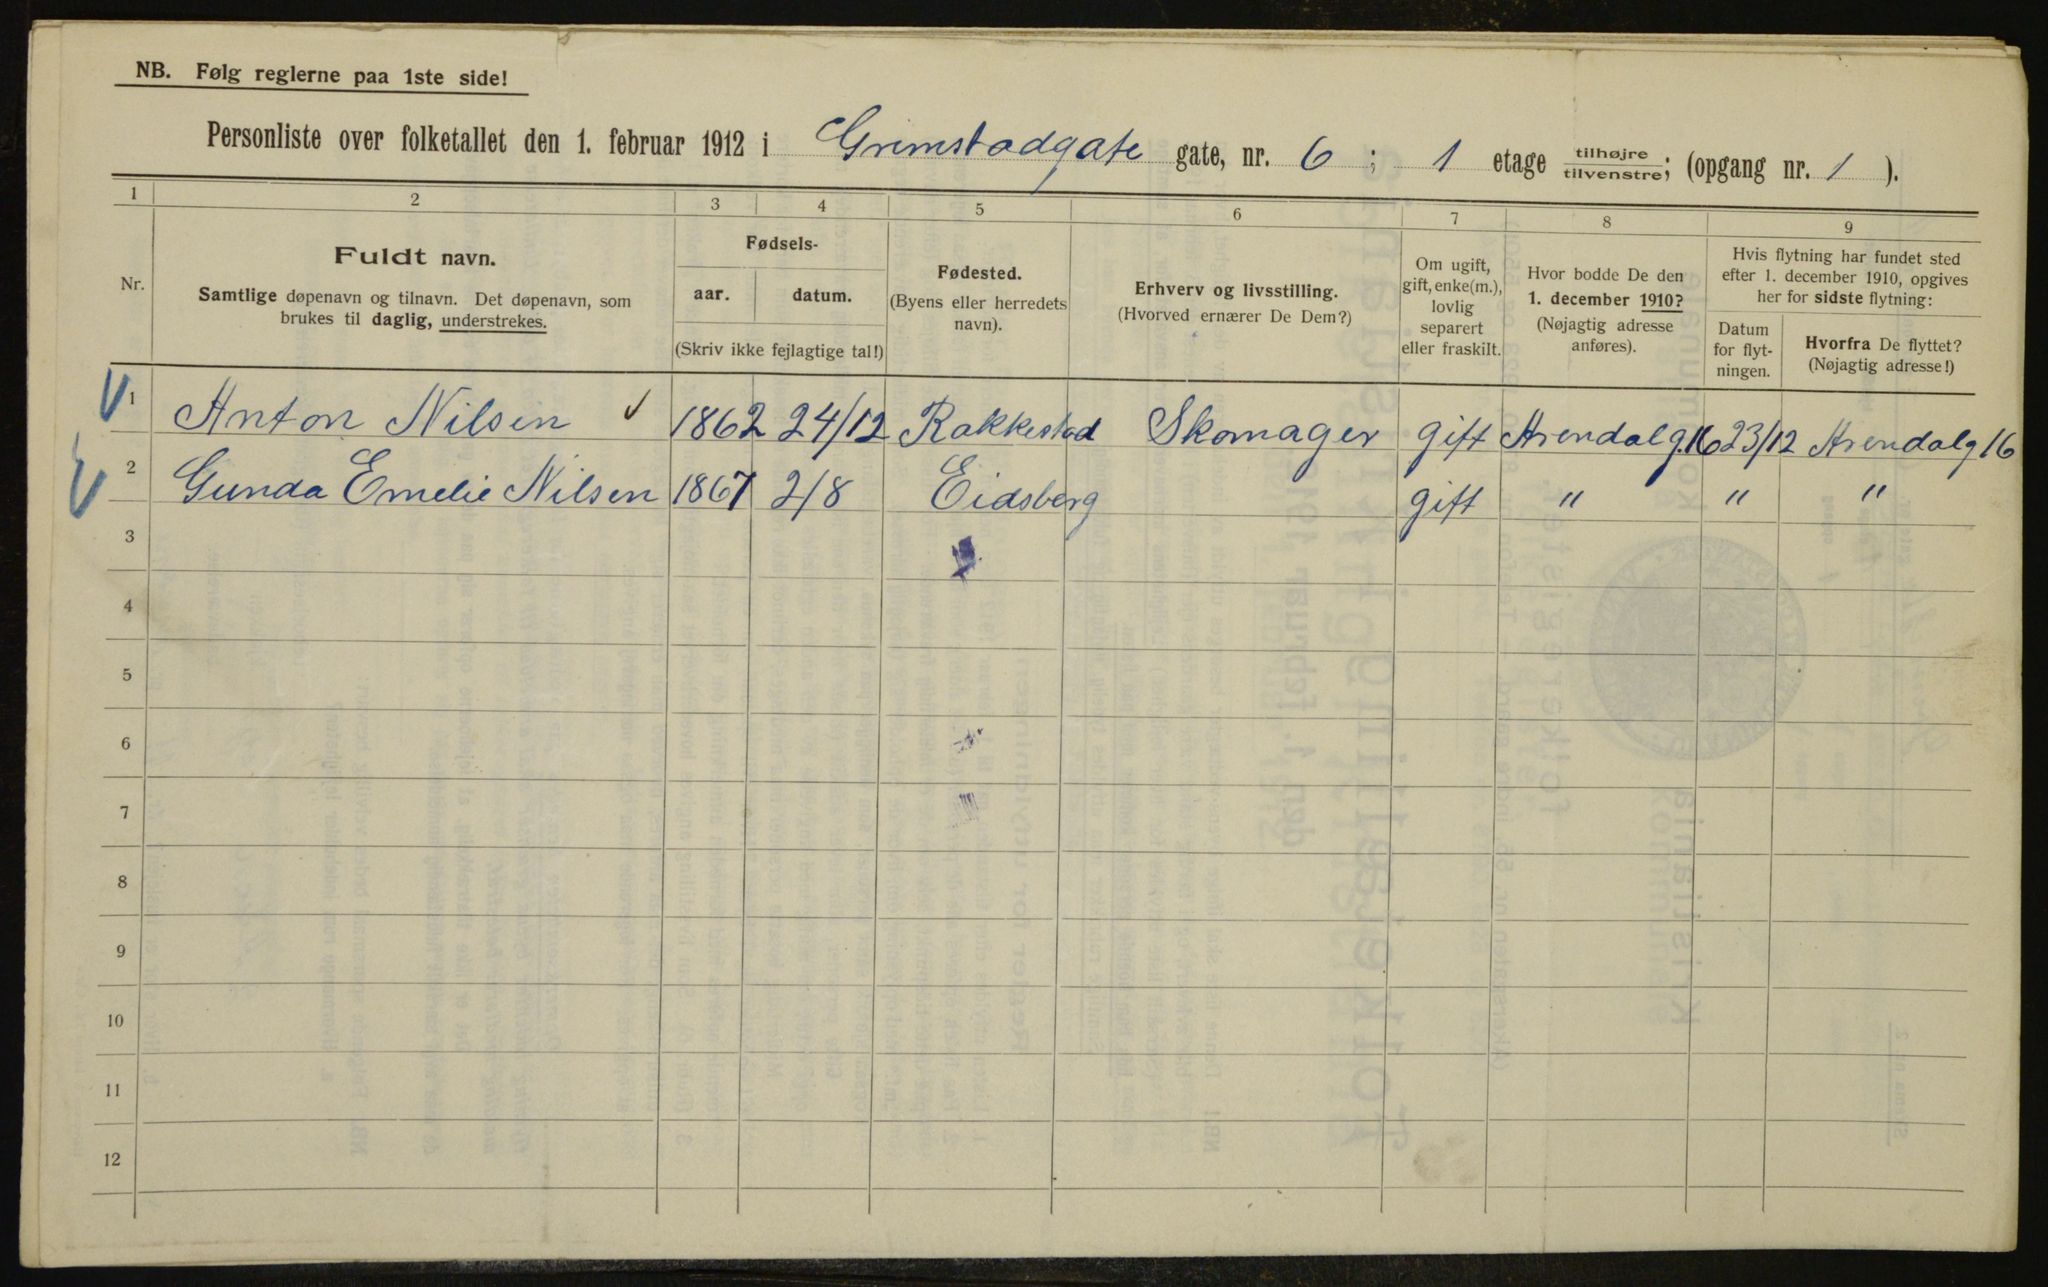 NB. Følg reglerne paa 1ste side!
Personliste over folketallet den 1. februar 1912 i Grimstadgate gate, nr. 6 ; 1 etage tilhøjre/tilvenstre; (opgang nr. 1 ).
1 2 3 4 5 6 7 8 9
Nr.
Fuldt navn.
Samtlige døpenavn og tilnavn. Det døpenavn, som
brukes til daglig, understrekes.
Fødsels-
aar. datum.
(Skriv ikke fejlagtige tal!)
Fødested.
(Byens eller herredets
navn).
Erhverv og livsstilling.
(Hvorved ernærer De Dem?)
Om ugift,
gift, enke(m.),
lovlig
separert
eller fraskilt.
Hvor bodde De den
1. december 1910?
(Nøjagtig adresse
anføres).
Hvis flytning har fundet sted
efter 1. december 1910, opgives
her for sidste flytning:
Datum
for flyt-
ningen.
Hvorfra De flyttet?
(Nøjagtig adresse!)
1 Anton Nilsen 1862 24/12 Rakkestad Skomager gift Arendalg.16 23/12 Arendalg 16
2 Gunda Emelie Nilsen 1867 2/8 Eidsberg gift " " "
3
4
5
6
7
8
9
10
11
12